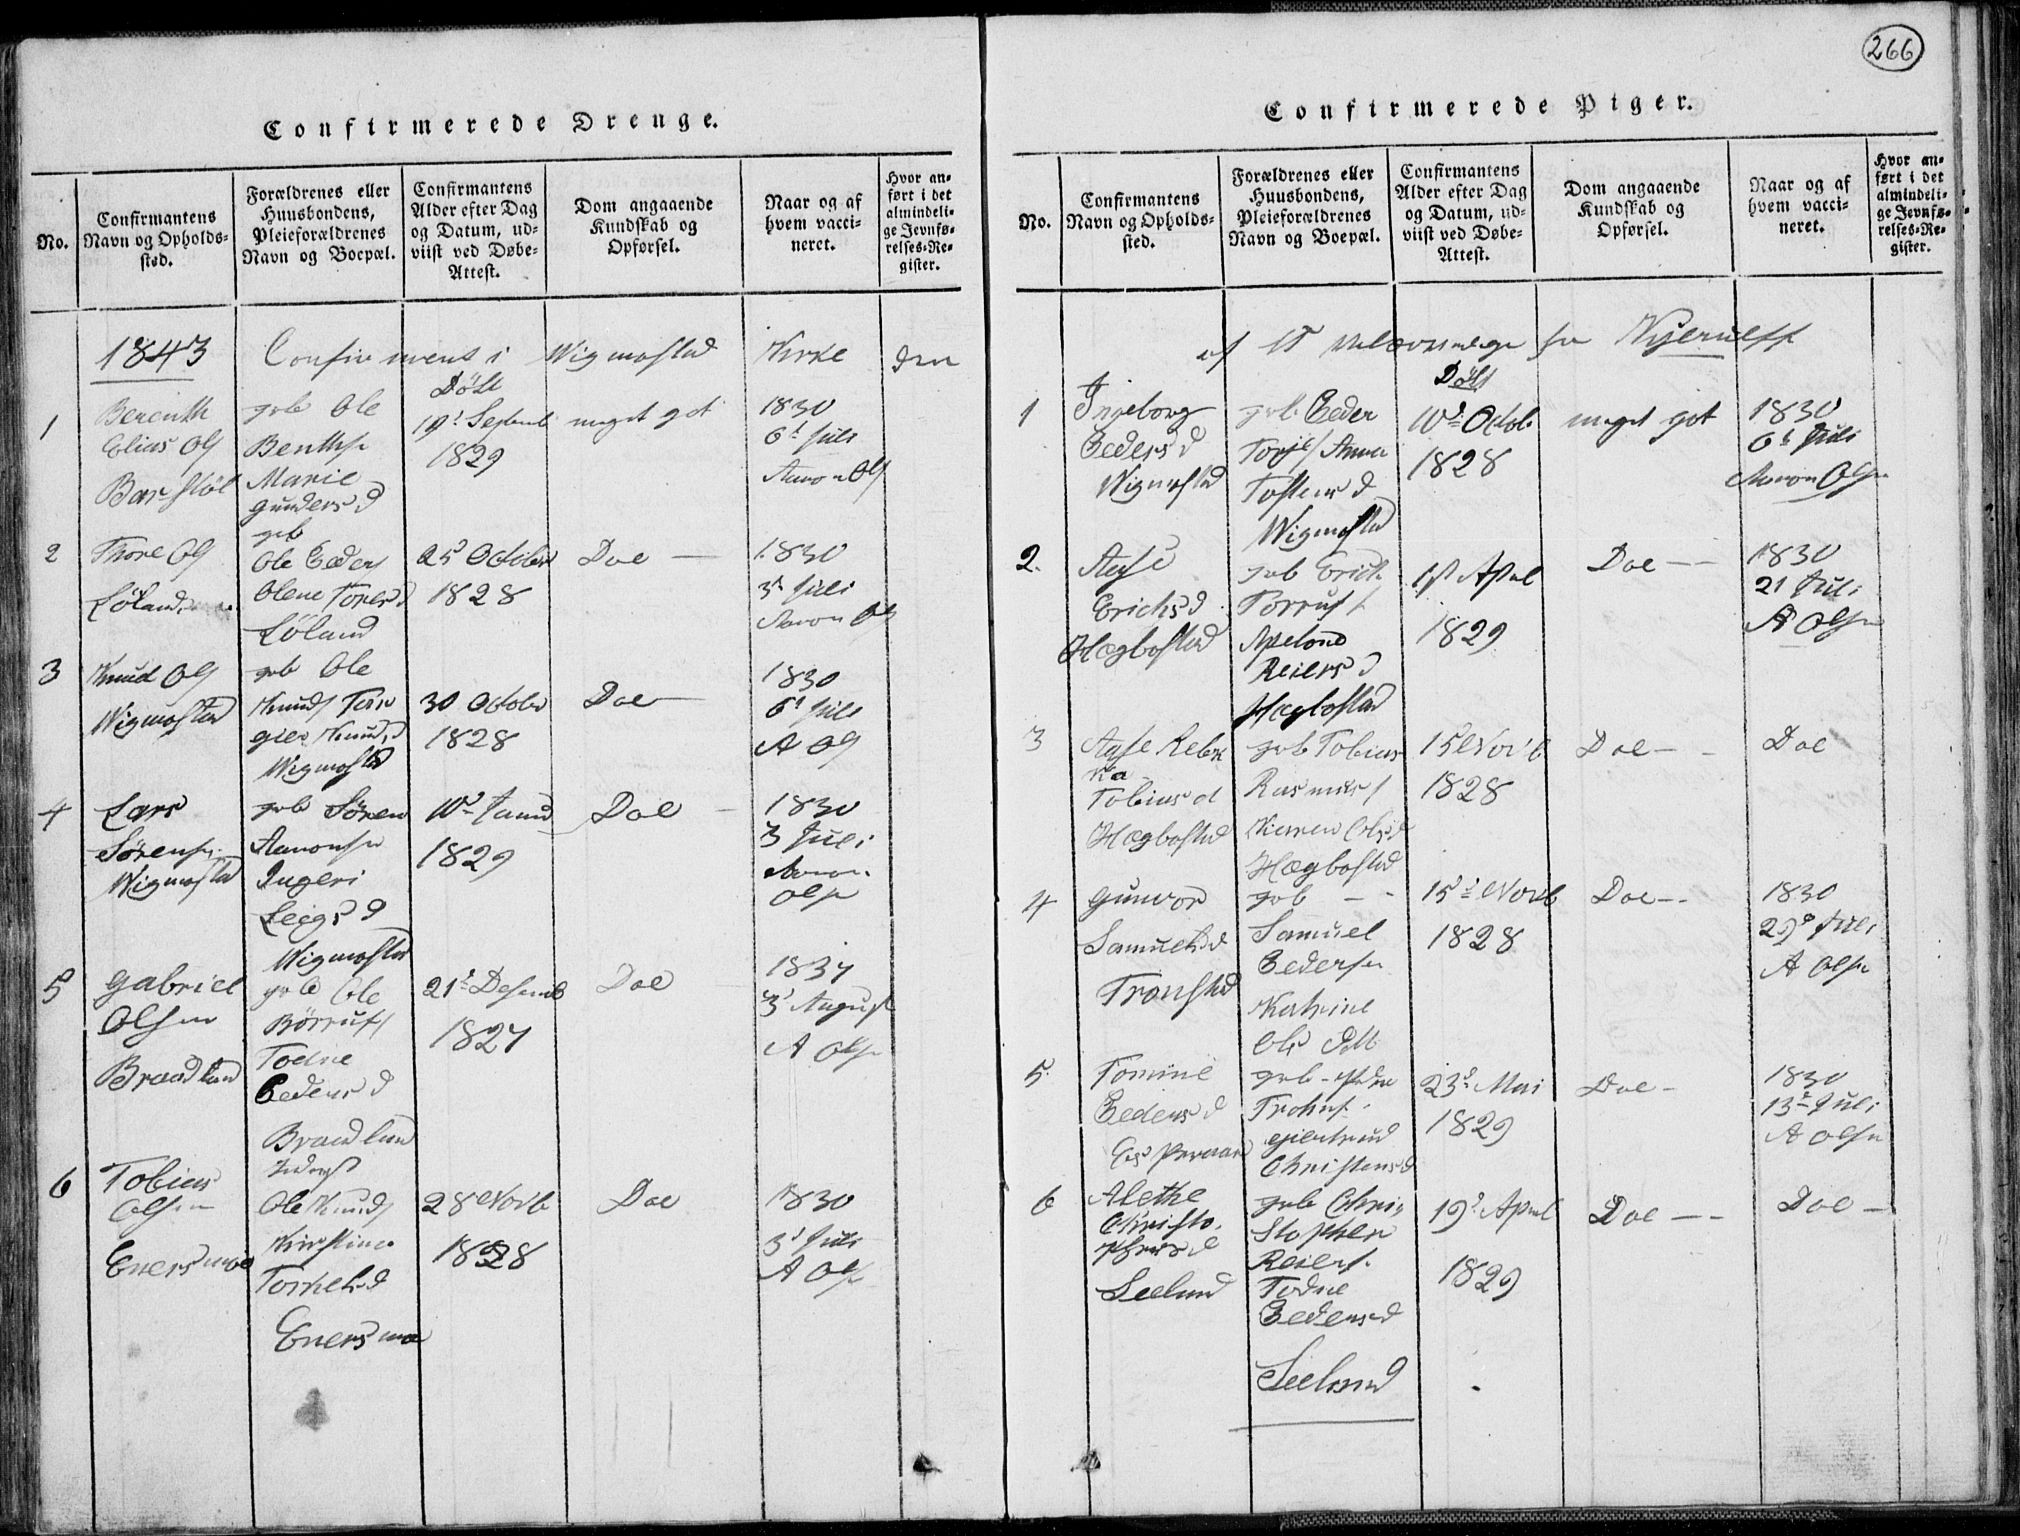 266
Confirmerede Drenge.
No.
Confirmantens
Navn og Opholds-
sted.
Forældrenes eller
Huusbondens,
Pleieforældrenes
Navn og Boepæl.
Confirmantens
Alder efter Dag
og Datum, ud-
viist ved Døbe-
Attest.
Dom angaaende
Kundskab og
Opførsel.
Naar og af
hvem vacci-
neret.
Hvor an-
ført i det
almindeli-
ge Jevnfø-
relses-Re-
gister.
1843 Wigmostad Kirke den
Døbt
1
Berenth
Elias Ols
Barstøl
gvb Ole
Benths
Marie
Gunders d
19d Septemb
1829
meget got
1830
6d Juli
Aaron Ols
2
Thore Ols
Løland
gvb
Ole Peders
Olene Tores d
Løland
25d October
1828
Doe —
1830
3d Juli
Aaron Ols
3
Knud Ols
Wigmostad
gvb Ole
Knuds
Wigmostad
30 October
1828
Doe —
1830
6d Juli
A Ols
4
Lars
Sörensn
Wigmostad
gvb Sören
Aanonsn
Ingeri
Leigs d
Wigmostad
10d
1829
Doe
1830
3 Juli
Olsn
5
Gabriel
Olsen
Braadland
gvb Ole
Todne
Peders d
Braadland
21d Desemb
1827
Doe
3d August
A Olsn
6
Tobias
Olsen
Eners moe
Ole Knuds
Kirstine
Torkels d
Eners moe
28 Novb
1828
Doe
1830
3d Juli
A Ols
Confirmerede Piger.
No.
Confirmantens
Navn og Opholds-
sted.
Forældrenes eller
Huusbondens,
Pleieforældrenes
Navn og Boepæl.
Confirmantens
Alder efter Dag
og Datum, ud-
viist ved Døbe-
Attest.
Dom angaaende
Kundskab og
Opførsel.
Naar og af
hvem vacci-
neret.
Hvor an-
ført i det
almindeli-
ge Jevnfø-
relses-Re-
gister.
af Kjerulff
Døbt
1
Ingeborg
Peders d
Wigmostad
gvb Peder
Torjes / Anna
Tostens d
Wigmostad
10d Octob
1828
meget got
1830
6d Juli
Aaron Olsn
2.
Aase
Erichs d
Hægbostad
gvb Erich
Apelone
Reiers d
Hægbostad
1st April
1829
Doe —
1830
21 Juli
A Olsn
3
Aase Rebek
ka
Tobias d
Hægbostad
gvb Tobias
Rasmus /
Karen Ols d
Hægbostad
15 Novb
1828
Doe —
Doe
4
Gunvor
Samuels d
Tronstad
gvb —
Samuel
Pedersn
Katrine
15d Novb
1828
Doe —
1830
29d Juli
A Olsn
5.
Tomine
Peders d
gvb Peder
Giertrud
Christens d
23d Mai
1829
Doe —
1830
13d Juli
A Olsn
6
Alethe
Christo-
phers d
Seeland
gvb Chri-
stopher
Reiers
Todne
Peders d
Seeland
19d April
1829
Doe —
Doe —